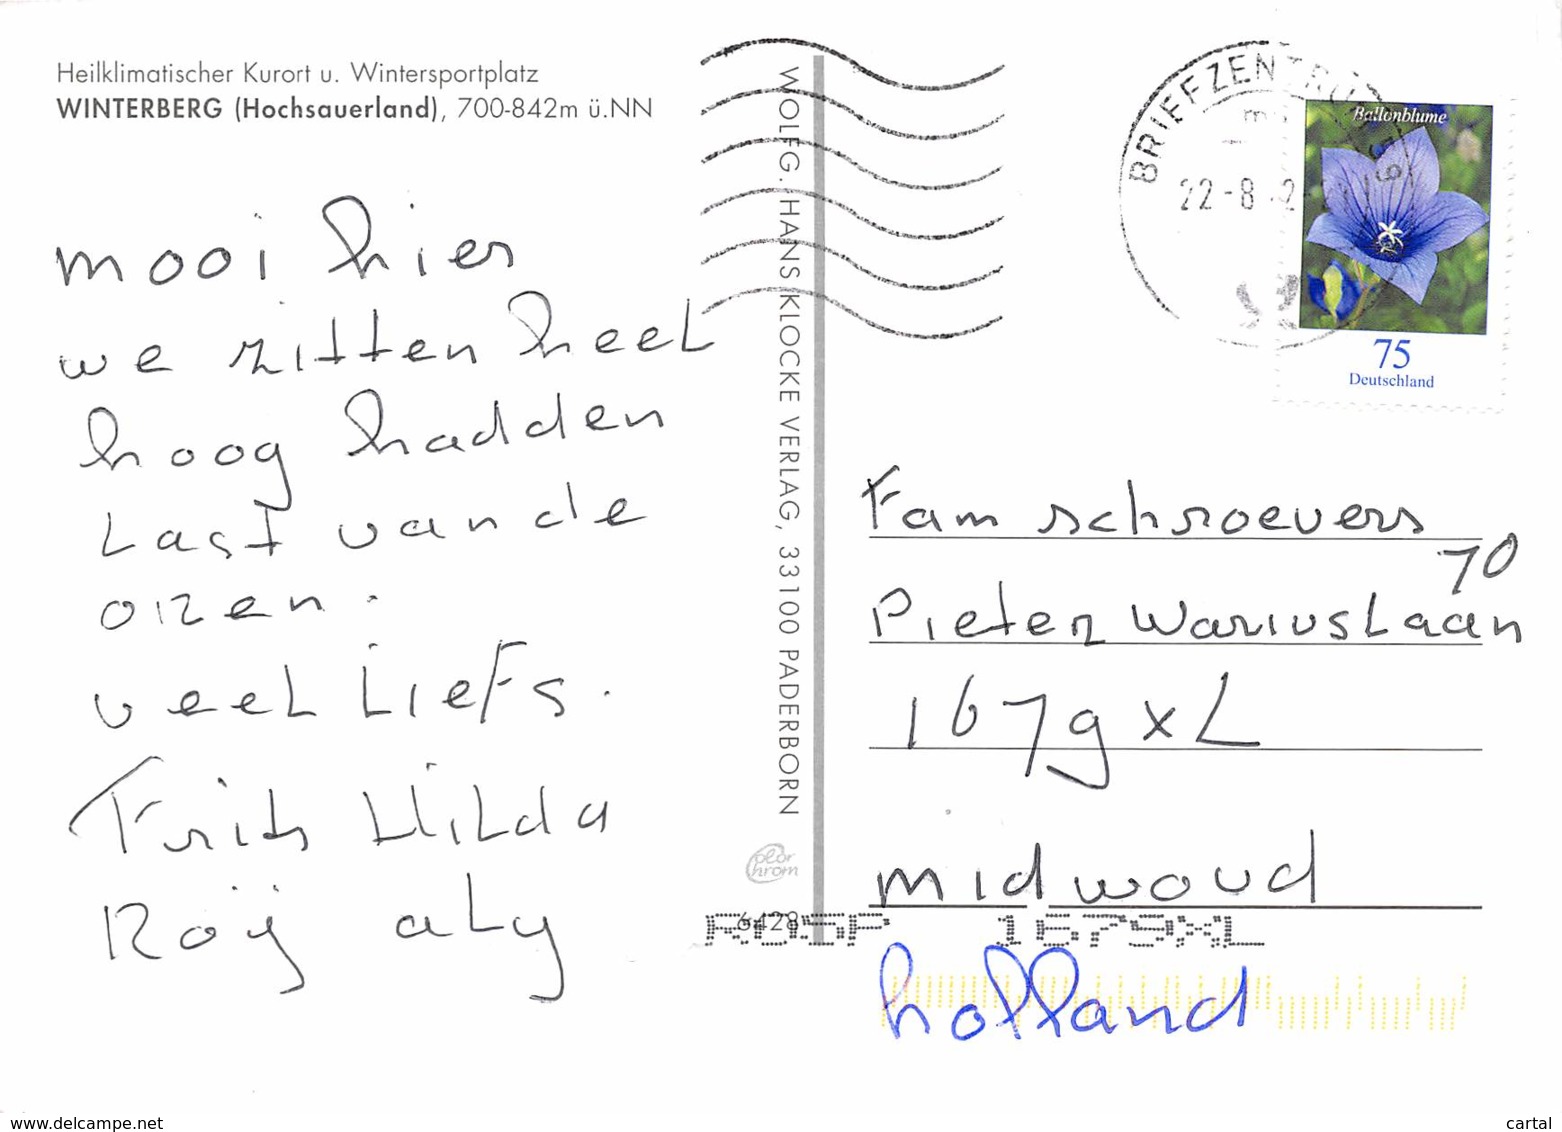 Heilklimatischer Kurort u. Wintersportplatz
WINTERBERG (Hochsauerland), 700-842m ü.NN
mooi hier
we zitten heel
hoog hadden
Last van de
oren.
veel Liefs.
Frits Hilda
Roÿ aLy
WOLFG. HANS KLOCKE VERLAG, 33100 PADERBORN
color
chrom
6428
BRIEFZENTRUM
22-8
Ballonblume
75
Deutschland
Fam schroevers
70
Pieter WariusLaan
1679 xL
midwoud
1679XL
holland
www.delcampe.net
cartal